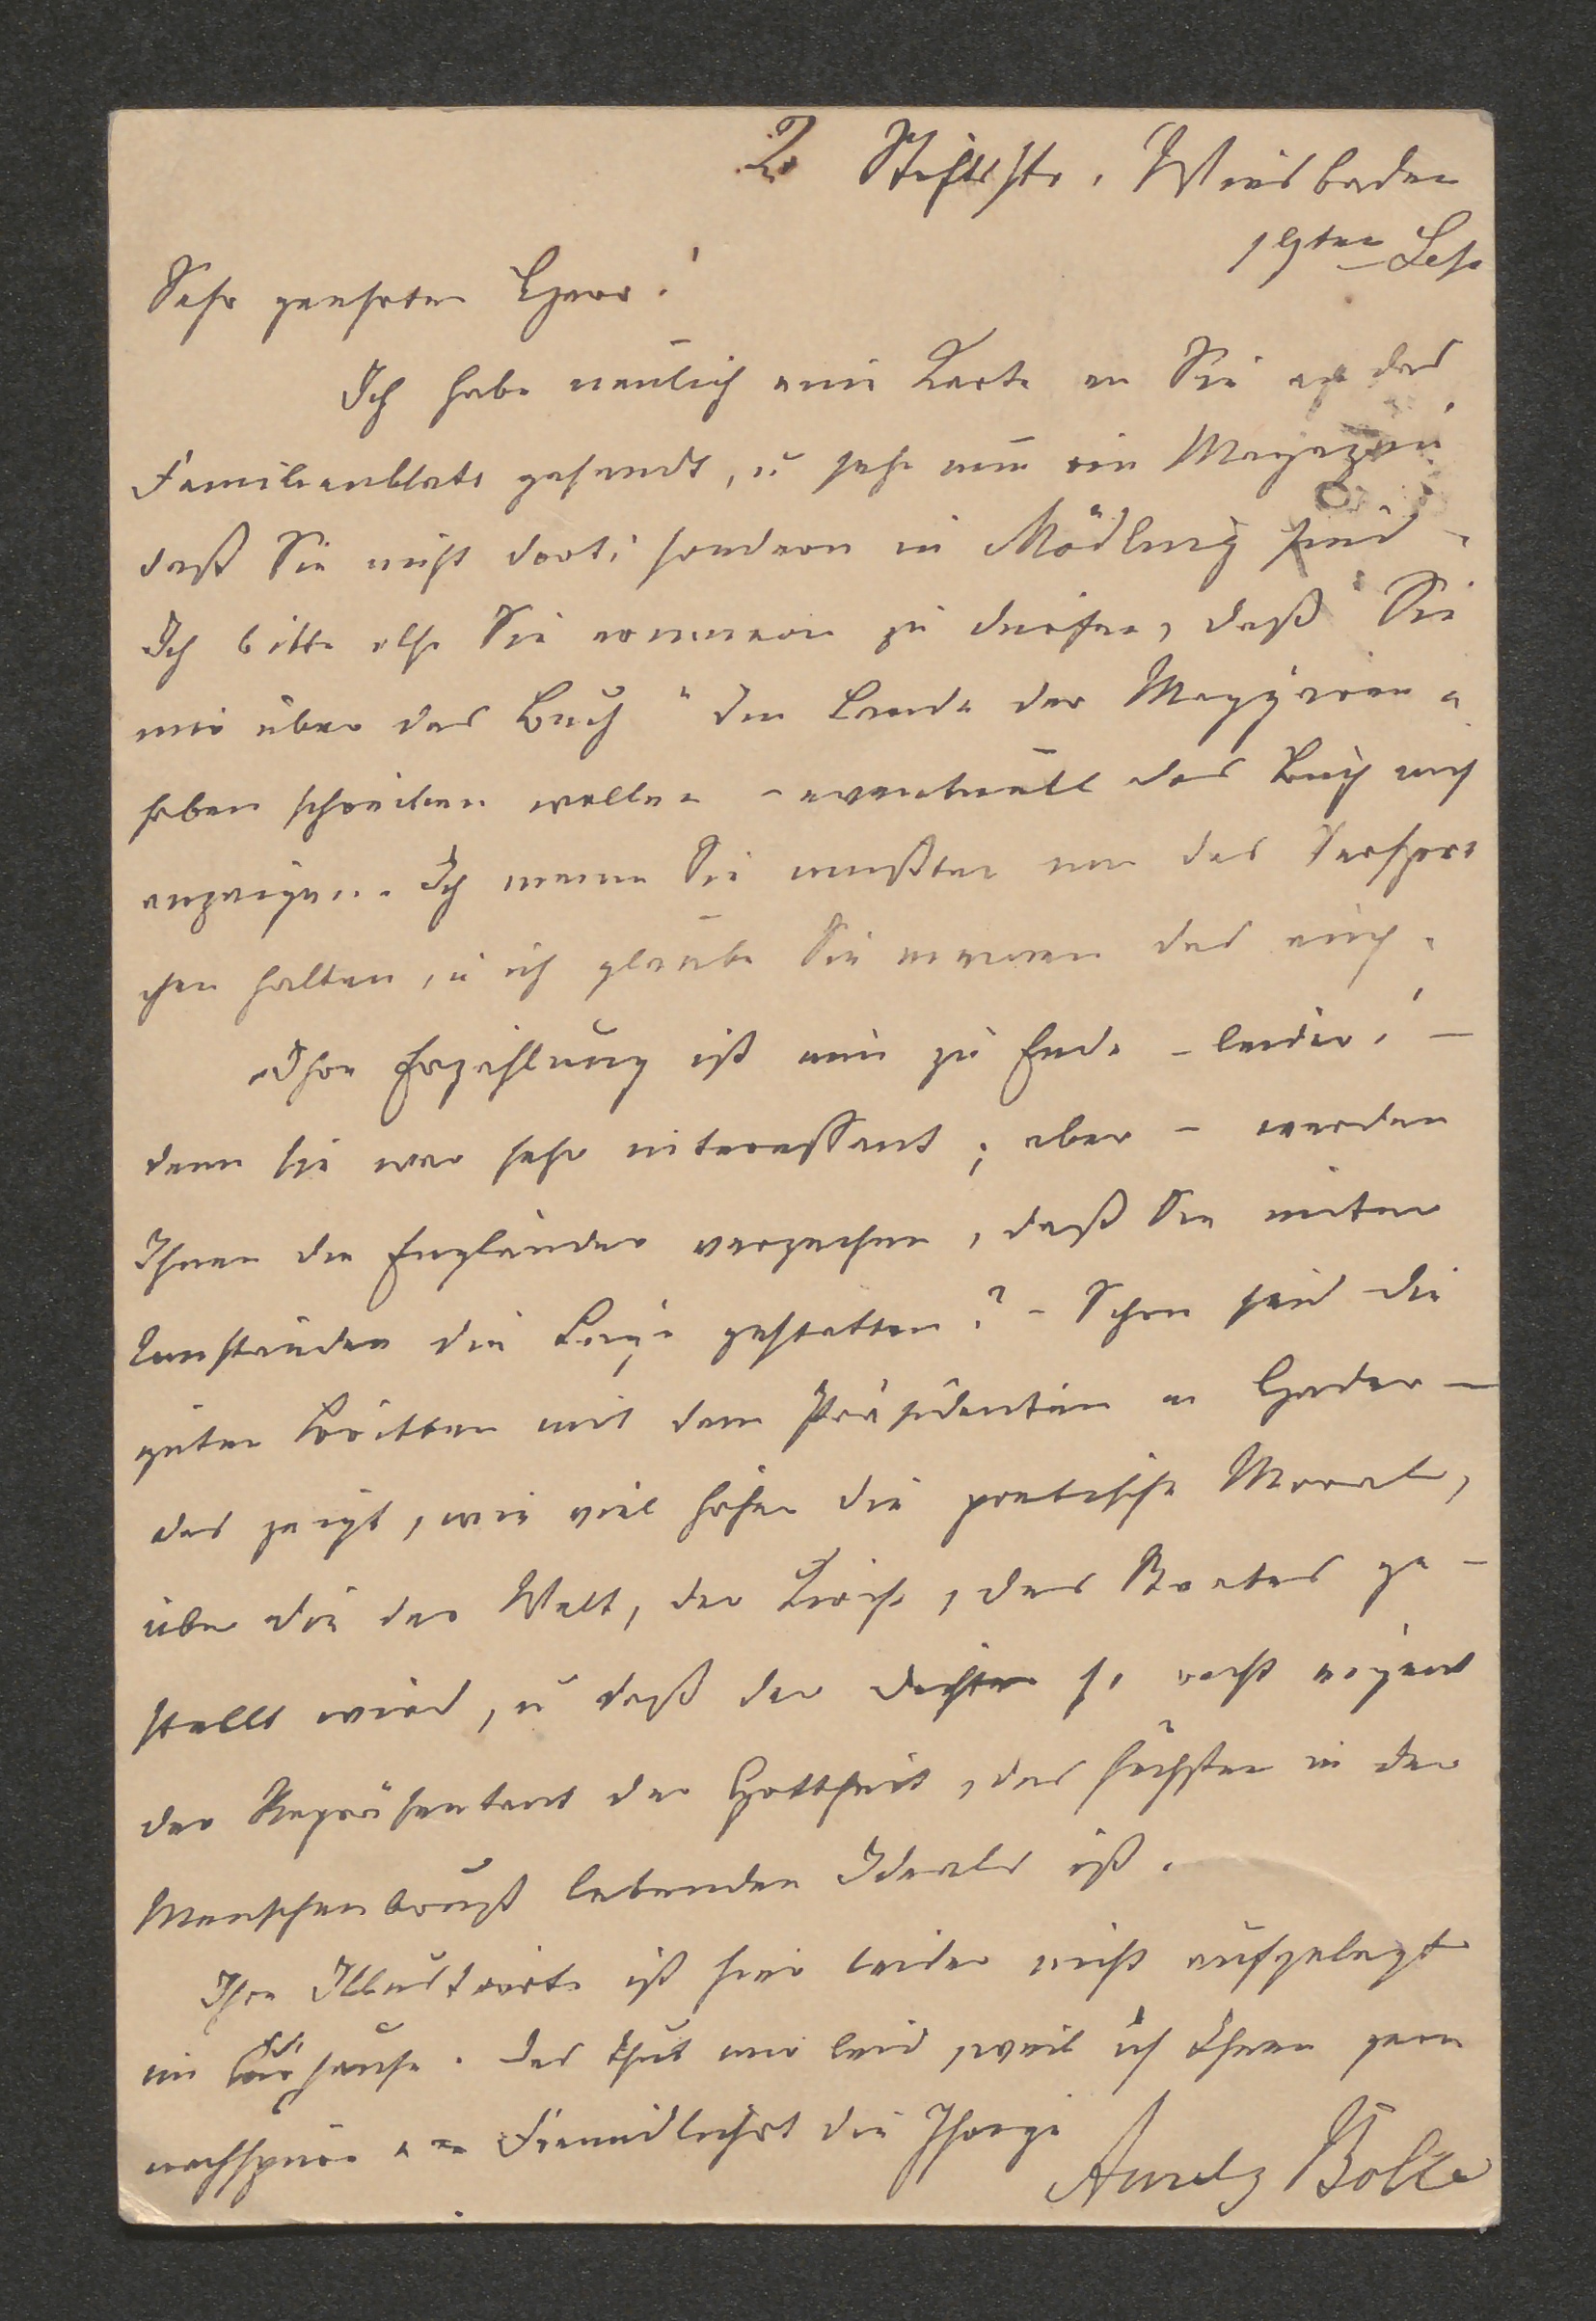 2 Stiftstr. Wiesbaden
19ten Sep
Sehr geehrter Herr!
Ich habe neulich eine Karte an Sie an das
Familienblatt gesandt, u sehe nun im Magazin
daß Sie nicht dort, sondern in Mödling sind.
Ich bitte also Sie erinnern zu dürfen, daß Sie
mir über das Buch "Im Lande der Magyaren"
haben schreiben wollen - eventuell das Buch auch
anzeigen. Ich meine Sie müßten nun das Verspre¬
chen halten, u ich glaube Sie meinen das auch.
Ihre Erzählung ist nun zu Ende - leider! -
denn sie war sehr interessant; aber - werden
Ihnen die Engländer verzeihen, daß Sie unter
Umständen die Lüge gestatten? - Schon sind die
guten Britten mit dem Präsidenten in Hader -
das zeigt, wie viel höher die poetische Moral,
über die der Welt, der Kirche, des Staates ge-
stellt wird, u daß der Dichter so recht eigent
der Repräsentant der Gottheit, des höchsten in der
Menschenbrust lebenden Ideals ist.
Ihre Illustrirte ist hier leider nicht aufgelegt
im Curhause. Das thut mir leid, weil ich Ihnen gern
nachspüre Freundlichst die Ihrige
Amely Bölte